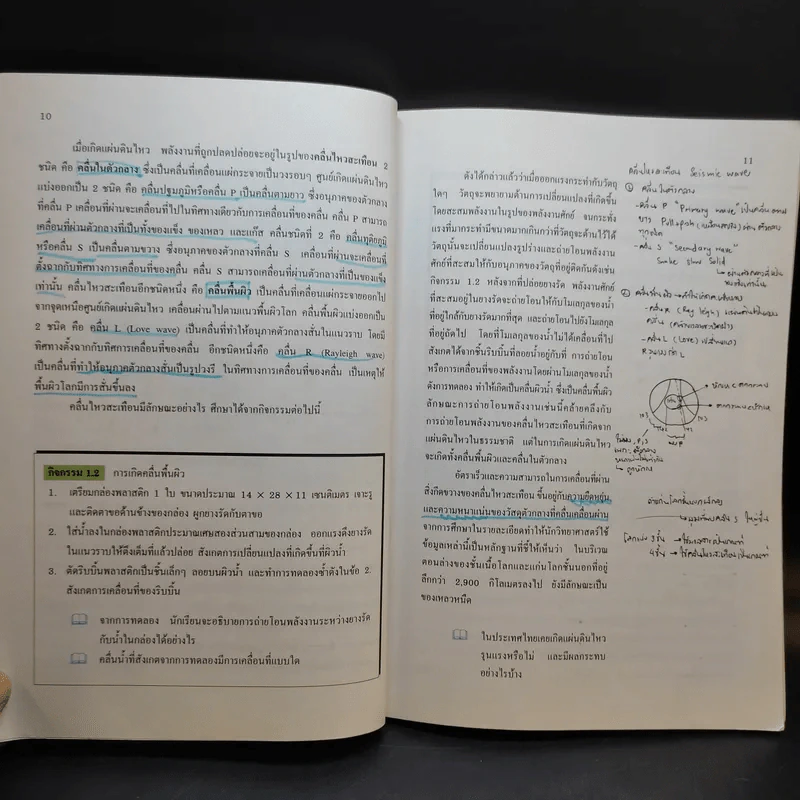 10
เมื่อเกิดแผ่นดินไหว พลังงานที่ถูกปลดปล่อยจะอยู่ในรูปของคลื่นไหวสะเทือน 2
ชนิด คือ คลื่นในตัวกลาง ซึ่งเป็นคลื่นที่เคลื่อนแผ่กระจายเป็นวงรอบๆ ศูนย์เกิดแผ่นดินไหว
แบ่งออกเป็น 2 ชนิด คือ คลื่นปฐมภูมิหรือคลื่น P เป็นคลื่นตามยาว ซึ่งอนุภาคของตัวกลาง
ที่คลื่น P เคลื่อนที่ผ่านจะเคลื่อนที่ไปในทิศทางเดียวกับการเคลื่อนที่ของคลื่น คลื่น P สามารถ
เคลื่อนที่ผ่านตัวกลางที่เป็นทั้งของแข็ง ของเหลว และแก๊ส คลื่นชนิดที่ 2 คือ คลื่นทุติยภูมิ
หรือคลื่น S เป็นคลื่นตามขวาง ซึ่งอนุภาคของตัวกลางที่คลื่น S เคลื่อนที่ผ่านจะเคลื่อนที่
ตั้งฉากกับทิศทางการเคลื่อนที่ของคลื่น คลื่น S สามารถเคลื่อนที่ผ่านตัวกลางที่เป็นของแข็ง
เท่านั้น คลื่นไหวสะเทือนอีกชนิดหนึ่ง คือ คลื่นพื้นผิว เป็นคลื่นที่เคลื่อนแผ่กระจายออกไป
จากจุดเหนือศูนย์เกิดแผ่นดินไหว เคลื่อนผ่านไปตามแนวพื้นผิวโลก คลื่นพื้นผิวแบ่งออกเป็น
2 ชนิด คือ คลื่น L (Love wave) เป็นคลื่นที่ทำให้อนุภาคตัวกลางสั่นในแนวราบ โดยมี
ทิศทางตั้งฉากกับทิศการเคลื่อนที่ของคลื่น อีกชนิดหนึ่งคือ คลื่น R (Rayleigh wave)
เป็นคลื่นที่ทำให้อนุภาคตัวกลางสั่นเป็นรูปวงรี ในทิศทางการเคลื่อนที่ของคลื่น เป็นเหตุให้
พื้นผิวโลกมีการสั่นขึ้นลง
คลื่นไหวสะเทือนมีลักษณะอย่างไร ศึกษาได้จากกิจกรรมต่อไปนี้
กิจกรรม 1.2 การเกิดคลื่นพื้นผิว
1. เตรียมกล่องพลาสติก 1 ใบ ขนาดประมาณ 14 × 28 × 11 เซนติเมตร เจาะรู
และติดตาขอด้านข้างของกล่อง ผูกยางรัดกับตาขอ
2. ใส่น้ำลงในกล่องพลาสติกประมาณเศษสองส่วนสามของกล่อง ออกแรงดึงยางรัด
ในแนวราบให้ตึงเต็มที่แล้วปล่อย สังเกตการเปลี่ยนแปลงที่เกิดขึ้นที่ผิวน้ำ
3. ตัดริบบิ้นพลาสติกเป็นชิ้นเล็กๆ ลอยบนผิวน้ำ และทำการทดลองซ้ำดังในข้อ 2.
สังเกตการเคลื่อนที่ของริบบิ้น
จากการทดลอง นักเรียนจะอธิบายการถ่ายโอนพลังงานระหว่างยางรัด
กับน้ำในกล่องได้อย่างไร
คลื่นน้ำที่สังเกตจากการทดลองมีการเคลื่อนที่แบบใด
11
ดังได้กล่าวแล้วว่าเมื่อออกแรงกระทำกับวัตถุ
ใดๆ วัตถุจะพยายามต้านการเปลี่ยนแปลงที่เกิดขึ้น
โดยสะสมพลังงานในรูปของพลังงานศักย์ จนกระทั่ง
แรงที่มากระทำมีขนาดมากเกินกว่าที่วัตถุจะต้านไว้ได้
วัตถุนั้นจะเปลี่ยนแปลงรูปร่างและถ่ายโอนพลังงาน
ศักย์ที่สะสมให้กับอนุภาคของวัตถุที่อยู่ติดกันดังเช่น
กิจกรรม 1.2 หลังจากที่ปล่อยยางรัด พลังงานศักย์
ที่สะสมอยู่ในยางรัดจะถ่ายโอนให้กับโมเลกุลของน้ำ
ที่อยู่ใกล้กับยางรัดมากที่สุด และถ่ายโอนไปยังโมเลกุล
ที่อยู่ถัดไป โดยที่โมเลกุลของน้ำไม่ได้เคลื่อนที่ไป
สังเกตได้จากชิ้นริบบิ้นที่ลอยน้ำอยู่กับที่ การถ่ายโอน
หรือการเคลื่อนที่ของพลังงานโดยผ่านโมเลกุลของน้ำ
ดังการทดลอง ทำให้เกิดคลื่นผิวน้ำ ซึ่งเป็นคลื่นพื้นผิว
ลักษณะการถ่ายโอนพลังงานเช่นนี้คล้ายคลึงกับ
การถ่ายโอนพลังงานของคลื่นไหวสะเทือนที่เกิดจาก
แผ่นดินไหวในธรรมชาติ แต่ในการเกิดแผ่นดินไหว
จะเกิดทั้งคลื่นพื้นผิวและคลื่นในตัวกลาง
อัตราเร็วและความสามารถในการเคลื่อนที่ผ่าน
สิ่งกีดขวางของคลื่นไหวสะเทือน ขึ้นอยู่กับความยืดหยุ่น
และความหนาแน่นของวัสดุตัวกลางที่คลื่นเคลื่อนผ่าน
จากการศึกษาในรายละเอียดทำให้นักวิทยาศาสตร์ใช้
ข้อมูลเหล่านี้เป็นหลักฐานที่ชี้ให้เห็นว่า ในบริเวณ
ตอนล่างของชั้นเนื้อโลกและแก่นโลกชั้นนอกที่อยู่
ลึกกว่า 2,900 กิโลเมตรลงไป ยังมีลักษณะเป็น
ของเหลวหนืด
ในประเทศไทยเคยเกิดแผ่นดินไหว
รุนแรงหรือไม่ และมีผลกระทบ
อย่างไรบ้าง
Seismic wave
① คลื่นในตัวกลาง
-คลื่น P "Primary wave"
- คลื่น S "Secondary wave"
-คลื่น L (Love)